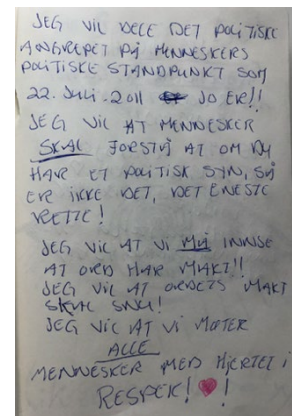 JEG VIL DELE DET POLITISKE
ANGREPET PÅ MENNESKERS
POLITISKE STANDPUNKT SOM
22. JULI. 2011 JO ER!!
JEG VIL AT MENNESKER
SKAL FORSTÅ AT OM DU
HAR ET POLITISK SYN, SÅ
ER IKKE DET, DET ENESTE
RETTE!
JEG VIL AT VI MÅ INNSE
AT ORD HAR MAKT!!
JEG VIL AT ORDETS MAKT
SKAL SNU!
JEG VIL AT VI MØTER
ALLE
MENNESKER MED HJERTET I
RESPEKT! !